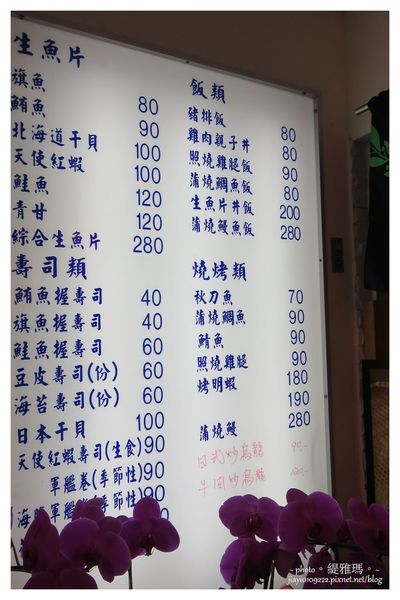 生魚片
旗魚 80
鮪魚 90
北海道干貝 100
天使紅蝦 100
鮭魚 120
青甘 120
綜合生魚片 280
壽司類
鮪魚握壽司 40
旗魚握壽司 40
鮭魚握壽司 60
豆皮壽司(份) 60
海苔壽司(份) 60
日本干貝 100
天使紅蝦壽司(生食)90
軍艦卷(季節性)90
海 軍艦卷(季節性)90
飯類
豬排飯 80
雞肉親子丼 80
照燒雞腿飯 90
蒲燒鯛魚飯 80
生魚片丼飯 200
蒲燒鰻魚飯 280
燒烤類
秋刀魚 70
蒲燒鯛魚 90
鯖魚 90
照燒雞腿 90
烤明蝦 180
190
蒲燒鰻 280
日式炒烏龍 90.-
炒烏龍
~photo。緹雅瑪。~
jiayi0109222.pixnet.net/blog